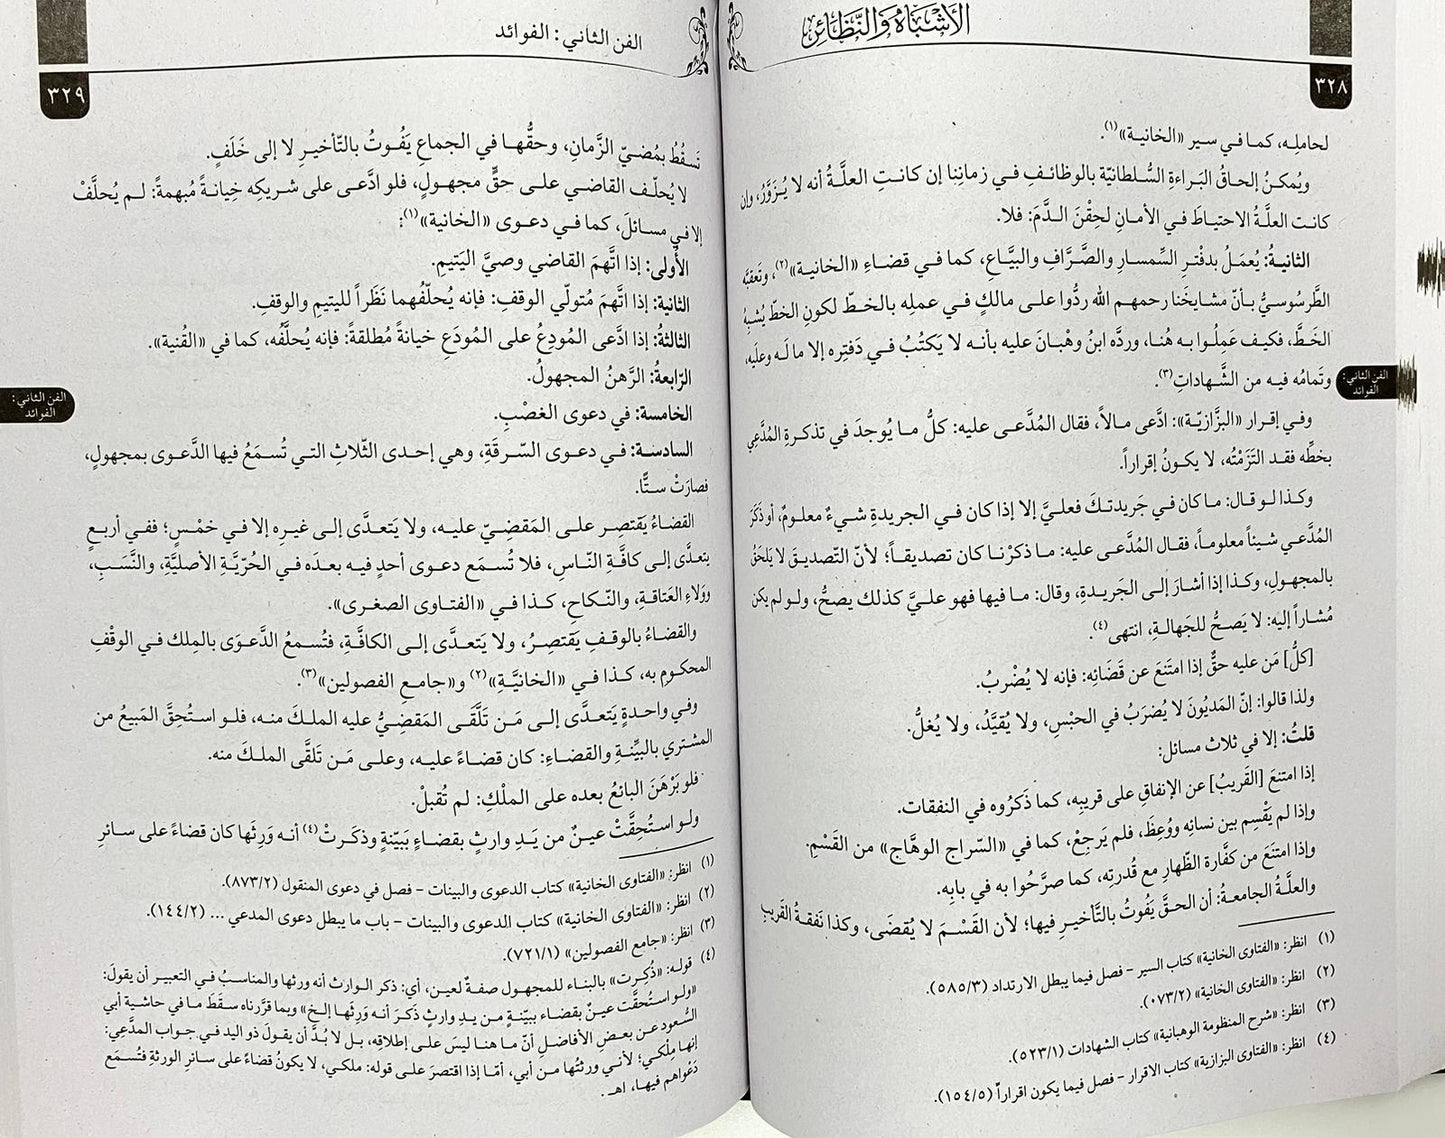 الأشباه والنظائر
٣٢٨
لحاملِه، كما في سير «الخانية»(١).
ويُمكنُ إلحاقُ البَراءةِ السُّلطانيّة بالوظائفِ في زمانِنا إن كانتِ العلَّةُ أنه لا يُزَوَّرُ، وإن
كانت العلَّةُ الاحتياطَ في الأمانِ لحِقْنَ الدَّمَ: فلا.
الثانيةُ: يُعمَلُ بدفترِ السِّمسارِ والصَّرَّافِ والبيَّاعِ، كما في قضاءِ «الخانية»(٢)، وتَعقبَّه
الطَّرسُوسيُّ بأنّ مشايخَنا رحمهم الله ردُّوا على مالكٍ في عملِه بالخطّ لكونِ الخطّ يُشبِهُ
الخَطَّ، فكيف عَمِلُوا به هُنا، وردَّه ابنُ وهْبانَ عليه بأنه لا يَكتُبُ في دَفترِه إلا ما لَه وعلَيه،
وتَمامُه فيه من الشَّهاداتِ(٣).
وفي إقرار «البزَّازيّة»: ادَّعى مالاً، فقال المُدَّعى عليه: كلُّ ما يُوجدَ في تذكرةِ المُدَّعِي
بخطِّه فقد التَزَمْتُه، لا يكونُ إقراراً.
وكذا لو قال: ما كان في جَريدتكَ فعليَّ إلا إذا كان في الجريدةِ شيءٌ معلومٌ، أو ذَكَرَ
المُدَّعي شيئاً معلوماً، فقال المُدَّعى عليه: ما ذكرْنا كان تصديقاً؛ لأنّ التّصديقَ لا يَلحَقُ
بالمجهولِ، وكذا إذا أشارَ إلى الجَريدةِ، وقال: ما فيها فهو عليَّ كذلك يصحُّ، ولو لم يكن
مُشاراً إليه: لا يَصحُّ للجَهالةِ، انتهى(٤).
[كلُّ] مَن عليه حقٌّ إذا امتَنعَ عن قَضَائه: فإنه لا يُضْربُ.
ولذا قالوا: إنّ المَديُونَ لا يُضرَبُ في الحبْسِ، ولا يُقيَّدُ، ولا يُغلُّ.
قلتُ: إلا في ثلاث مسائل:
إذا امتنعَ [القَريبُ] عن الإنفاقِ على قريبِه، كما ذَكرُوه في النفقات.
وإذا لم يَقْسِم بين نسائِه ووُعِظَ، فلم يَرجِعْ، كما في «السّراج الوهَّاج» من القَسْمِ.
وإذا امتنَعَ من كفَّارة الظّهارِ مع قُدرتِه، كما صرَّحُوا به في بابِه.
والعلَّةُ الجامعةُ: أن الحقَّ يَفُوتُ بالتَّأخيرِ فيها؛ لأن القَسْمَ لا يُقضَى، وكذا نَفقةُ القَريبِ
(١) انظر: «الفتاوى الخانية» كتاب السير – فصل فيما يبطل الارتداد (٥٨٥/٣).
(٢) انظر: «الفتاوى الخانية» (٠٧٣/٢).
(٣) انظر: «شرح المنظومة الوهبانية» كتاب الشهادات (٥٢٣/١).
(٤) انظر: «الفتاوى البزازية» كتاب الاقرار – فصل فيما يكون اقراراً (١٥٤/٥).
الفن الثاني:
الفوائد
الفن الثاني: الفوائد
٣٢٩
تَسقُطُ بمُضيّ الزَّمانِ، وحقُّها في الجماعِ يَفُوتُ بالتّأخيرِ لا إلى خَلَفٍ.
لا يُحلّف القاضي على حقٍّ مجهولٍ، فلو ادَّعى على شريكِه خِيانةً مُبهمةً: لم يُحلَّفْ
إلا في مسائلَ، كما في دعوى «الخانية»(١):
الأُولى: إذا اتَّهمَ القاضي وصيَّ اليَتيمِ.
الثانية: إذا اتَّهمَ مُتولّي الوقفِ: فإنه يُحلّفُهما نَظَراً لليتيمِ والوقفِ.
الثالثةُ: إذا ادَّعى المُودِعُ على المُودَعِ خيانةً مُطلقةً: فإنه يُحلَّفُه، كما في «القُنية».
الرّابعةُ: الرَّهنُ المجهولُ.
الخامسة: في دعوى الغصْبِ.
السادسة: في دعوى السّرقَةِ، وهي إحدى الثّلاثِ التي تُسمَعُ فيها الدَّعوى بمجهولٍ،
فصارَتْ ستًّا.
القضاءُ يَقتصِر على المَقضِيّ عليه، ولا يَتعدَّى إلى غيرِه إلا في خمْسٍ؛ ففي أربعٍ
يتعدَّى إلى كافَّةِ النّاسِ، فلا تُسمَع دعوى أحدٍ فيه بعدَه في الحُرّيَّةِ الأصليَّةِ، والنَّسَبِ،
ووَلاءِ العَتاقةِ، والنّكاحِ، كذا في «الفتاوى الصغرى».
والقضاءُ بالوقفِ يَقتصِرُ، ولا يَتعدَّى إلى الكافَّةِ، فتُسمعُ الدَّعوَى بالمِلك في الوقْفِ
المحكومِ به، كذا في «الخانيَّةِ»(٢) و«جامعِ الفصولين»(٣).
وفي واحدةٍ يَتعدَّى إلى مَن تَلَّقَى المَقضِيُّ عليه الملكَ منه، فلو استُحِقَّ المَبيعُ من
المشتري بالبيِّنةِ والقضاءِ: كان قضاءً عليه، وعلى مَن تَلقَّى الملكَ منه.
فلو بَرْهَنَ البائعُ بعده على الملْكِ: لم تُقبلْ.
ولو استُحِقَّتْ عينٌ من يَدِ وارثٍ بقضاءٍ ببَيّنةٍ وذكَرتْ(٤) أنه وَرِثَها كان قضاءً على سائرِ
(١) انظر: «الفتاوى الخانية» كتاب الدعوى والبينات – فصل في دعوى المنقول (٨٧٣/٢).
(٢) انظر: «الفتاوى الخانية» كتاب الدعوى والبينات – باب ما يبطل دعوى المدعي ... (١٤٤/٢).
(٣) انظر: «جامع الفصولين» (٧٢١/١).
(٤) قوله: «ذُكِرت» بالبناء للمجهول صفةٌ لعين، أي: ذكر الوارث أنه ورثها والمناسبُ في التعبير أن يقولَ:
«ولو استُحقَّت عينٌ بقضاء ببيّنةٍ من يدِ وارثٍ ذكَرَ أنه وَرِثَها إلخ» وبما قرَّرناه سقَطَ ما في حاشية أبي
السُّعود عن بعضِ الأفاضلِ أنّ ما هنا ليسَ على إطلاقِه، بل لا بُدَّ أن يقولَ ذو اليد في جواب المدَّعِي:
إنها مِلْكي؛ لأني ورثتُها من أبي، أمّا إذا اقتصرَ على قوله: ملكي، لا يكونُ قضاءً على سائرِ الورثةِ فتُسمَع
دَعْواهم فيها، اهـ.
الفن الثاني:
الفوائد